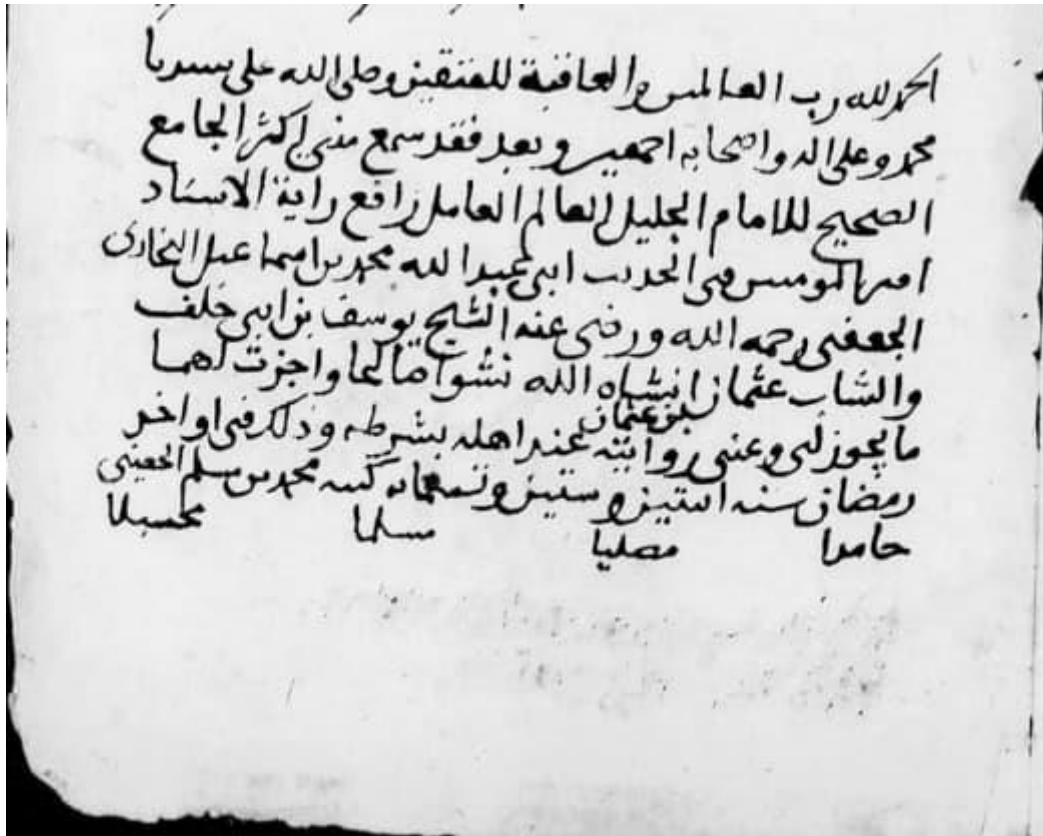 الحمد لله رب العالمين والعاقبة للمتقين وصلى الله على سيدنا
محمد وعلى اله واصحابه اجمعين وبعد فقد سمع مني اكثر الجامع
الصحيح للامام الجليل العالم العامل رافع راية الاسناد
امير المومنين في الحديث ابي عبد الله محمد بن اسماعيل البخاري
الجعفي رحمه الله ورضي عنه الشيخ يوسف بن ابي خلف
والشاب عثمان انشاه الله نشوا صالحا واجزت لهما
بن عثمان
ما يجوز لي وعني روايته عند اهله بشرطه وذلك في اواخر
رمضان سنه اثنتين وستين وتسعمايه كتبه محمد بن سلم
حامدا مصليا مسلما محسبلا